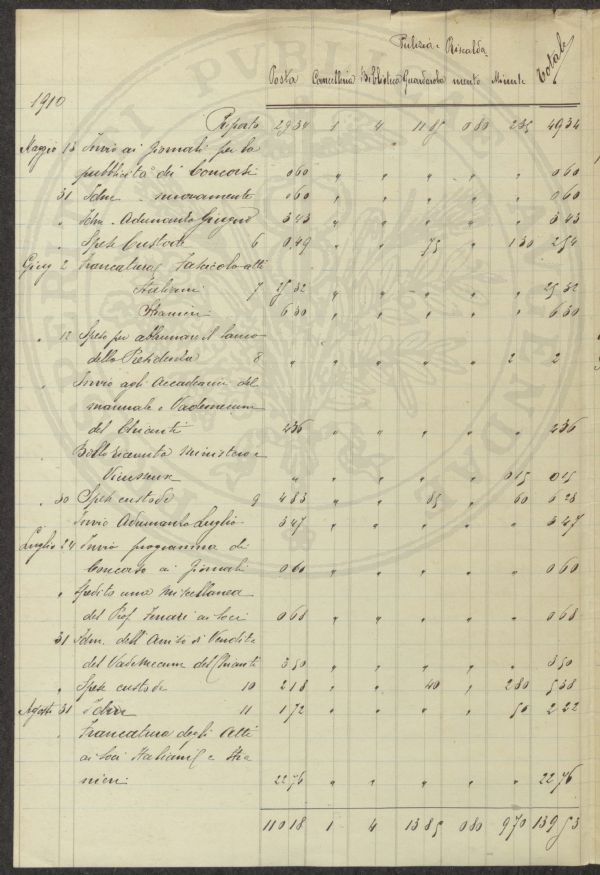 Pulizia e Riscalda
Posta Cancelleria Biblioteca Guardaroba mento Minute Totale
1910
Riporto 29 34 1 4 11 85 0 80 2 35 49 34
Maggio 13 Invio ai Giornali per la
pubblicità dei Concorsi 0 60 " " " " " 0 60
31 Idm. nuovamente 0 60 " " " " " 0 60
" Idm. Adunanza Giugno 3 43 " " " " " 3 43
" Spese Custode 6 0,49 " " 75 " 1 30 2 54
Giug 2 Francatura Fascicolo atti
Italiani 7 25 32 " " " " " 25 32
Stranieri 6 30 " " " " " 6 30
" 12 Spese per il banco
della Presidenza 8 " " " " " 2 2
" Invio agli Accademici del
manuale e Vademecum
del Chianti 2 36 " " " " " 2 36
" Bollo ricevuta Ministero e
Vieusseux " " " " " 0 15 0 15
" 30 Spese custode 9 4 83 " " 85 " 60 6 28
Invio Adunanza Luglio 3 47 " " " " " 3 47
Luglio 24 Invio programma di
Concorso ai Giornali 0 60 " " " " " 0 60
" Spedito una Miscellanea
del Prof. ai Soci 0 68 " " " " " 0 68
31 Idm. dell' Avviso di Vendita
del Vademecum del Chianti 3 50 " " " " " 3 50
" Spese custode 10 2 18 " " 40 " 2 80 5 38
Agosto 31 Idem 11 1 72 " " " " 50 2 22
" Francatura degli Atti
ai Soci Italiani e Stra
nieri 22 76 " " " " " 22 76
110 18 1 4 13 85 0 80 9 70 139 53